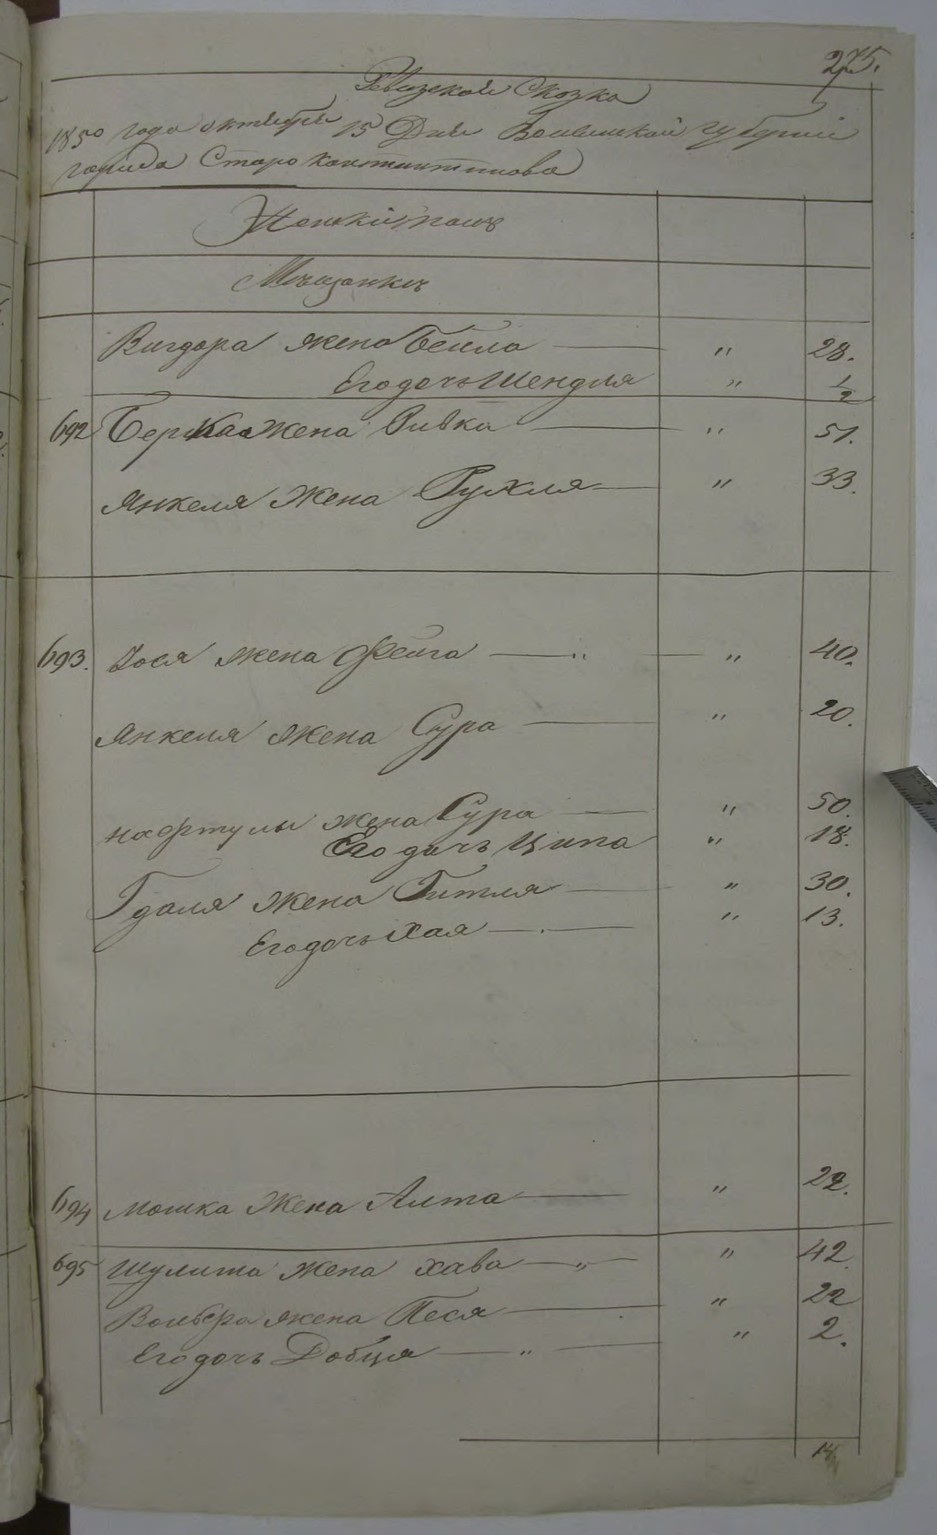 275.
Ревизская Сказка
1850 года октября 15 Дня Волынской губернии
города Старо константинова
Женскій полъ
Мещанкъ
Вигдора жена Бейла — " 28.
Его дочь Шендля " 1/2
692 Берка жена Ривка — " 51.
Янкеля жена Рухля — " 33.
693. Іося жена Фейга — " — " 40.
Янкеля жена Сура — " 20.
нафтулы жена Сура — " 50.
Его дочь Ципа " 18.
Гдаля жена Гитля — " 30.
Его дочь Хая — . — " 13.
694 мошка жена Алта — " 22.
695 Шулима жена хава — " — " 42.
Вольвра жена Песя — " 22
Его дочь Добця — " — " 2.
14